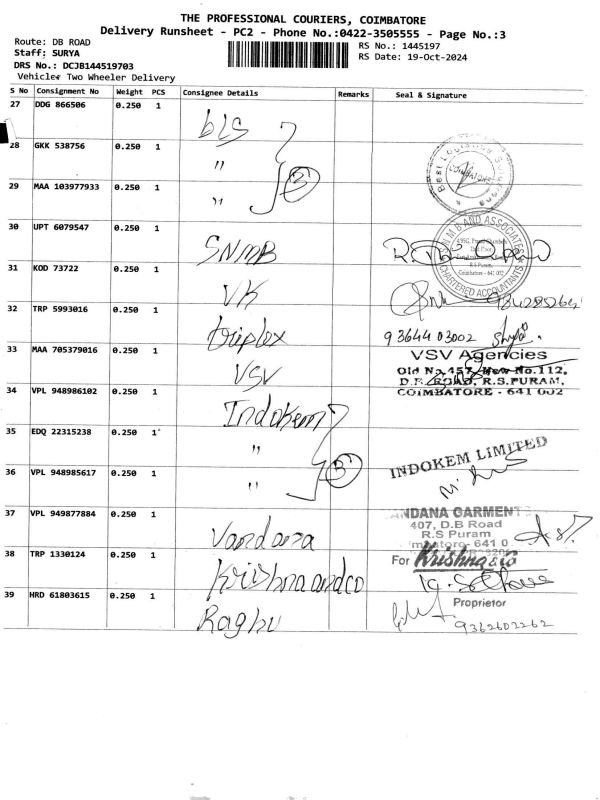 THE PROFESSIONAL COURIERS, COIMBATORE
Delivery Runsheet - PC2 - Phone No.:0422-3505555 - Page No.:3
Route: DB ROAD
Staff: SURYA
DRS No.: DCJB144519703
Vehicle: Two Wheeler Delivery
RS No.: 1445197
RS Date: 19-Oct-2024
S No Consignment No Weight PCS Consignee Details Remarks Seal & Signature
27 DDG 866506 0.250 1 bLS
28 GKK 538756 0.250 1 "
29 MAA 103977933 0.250 1 " 3
COIMBATORE
30 UPT 6079547 0.250 1 SNMB
N M B AND ASSOCIATES
R.S Puram,
Coimbatore - 641 002
CHARTERED ACCOUNTANTS
31 KOD 73722 0.250 1 VK
32 TRP 5993016 0.250 1 triplex 93644 03002
33 MAA 705379016 0.250 1 VSV
VSV Agencies
Old No.457, New No.112,
D.B. ROAD, R.S.PURAM,
COIMBATORE - 641 002
34 VPL 948986102 0.250 1 Indokem
35 EDQ 22315238 0.250 1 "
36 VPL 948985617 0.250 1 " 3
INDOKEM LIMITED
37 VPL 949877884 0.250 1 Vandana
ANDANA GARMENT
407, D.B Road
R.S Puram
mbatore- 641 0
38 TRP 1330124 0.250 1 Krishna and co
For Krishna & Co
Proprietor
39 HRD 61803615 0.250 1 Raghu
9362602262